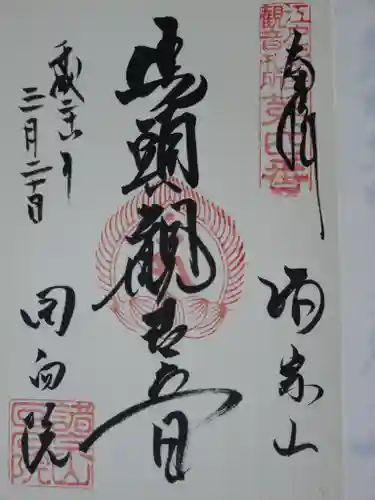 奉拝
江戸観音札所第四番
諸宗山
馬頭觀世音
平成
三月二十日
回向院